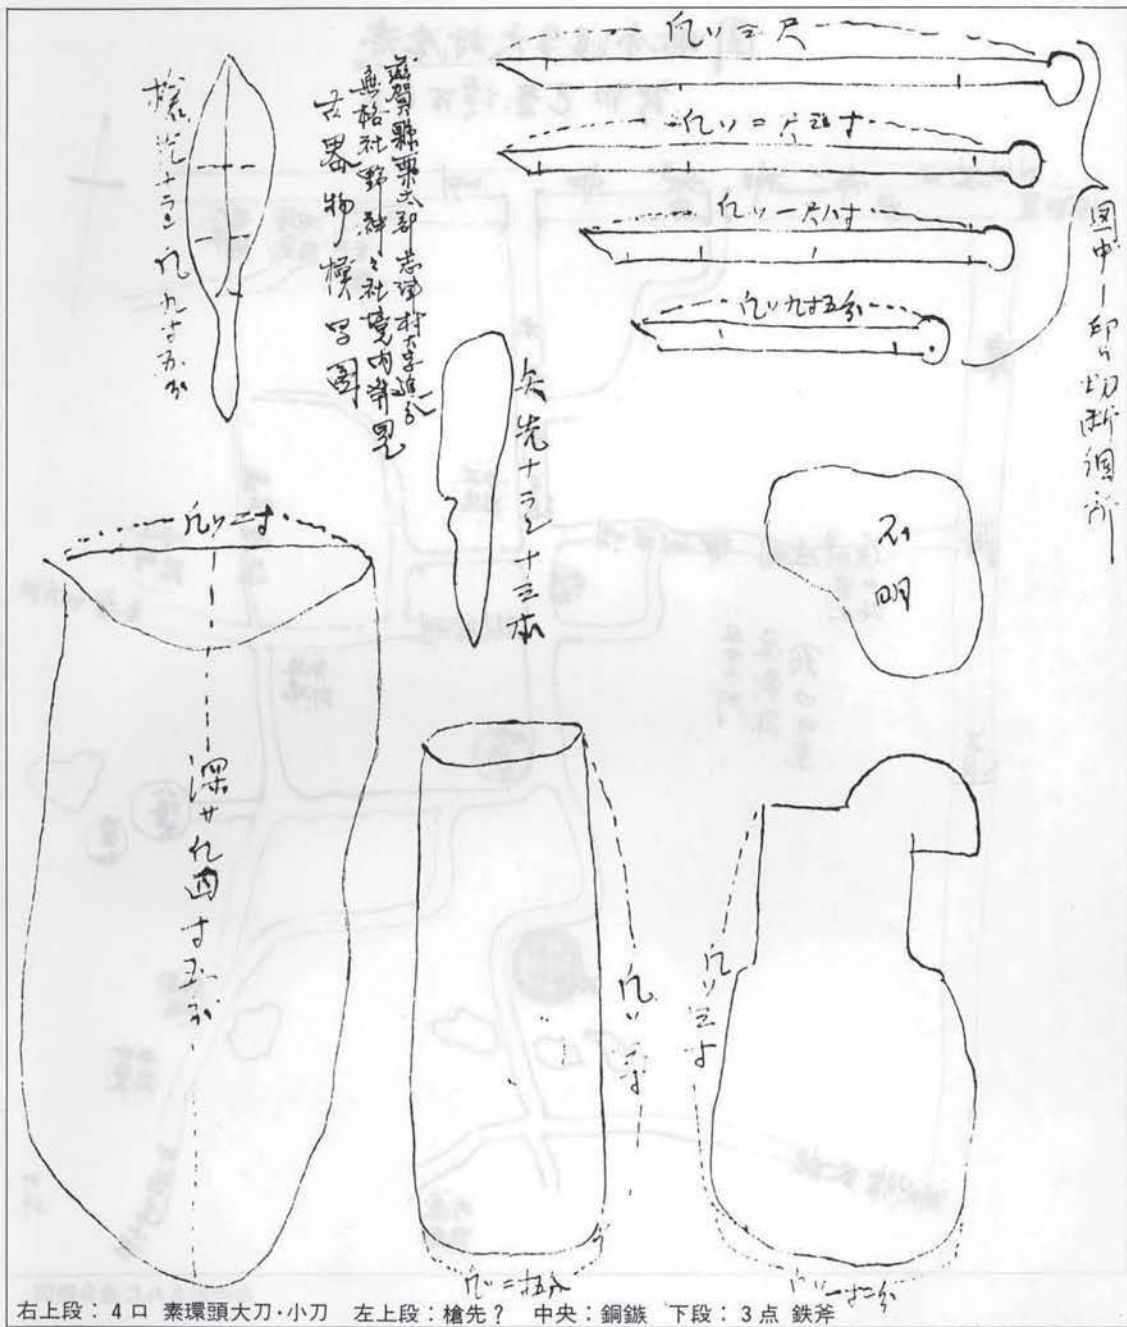 凡ソ三尺
凡ソ二尺三寸
凡ソ一尺八寸
凡ソ九寸五分
図中｜印ハ切断個所
滋賀縣栗太郡志津村大字追分
無格社野神々社境内発見
古器物模写図
槍先ナラン 凡九寸五分
矢先ナラン十三本
不明
凡ソ二寸
深サ凡四寸五分
凡ソ三寸
右上段：4口 素環頭大刀・小刀 左上段：槍先？ 中央：銅鏃 下段：3点 鉄斧